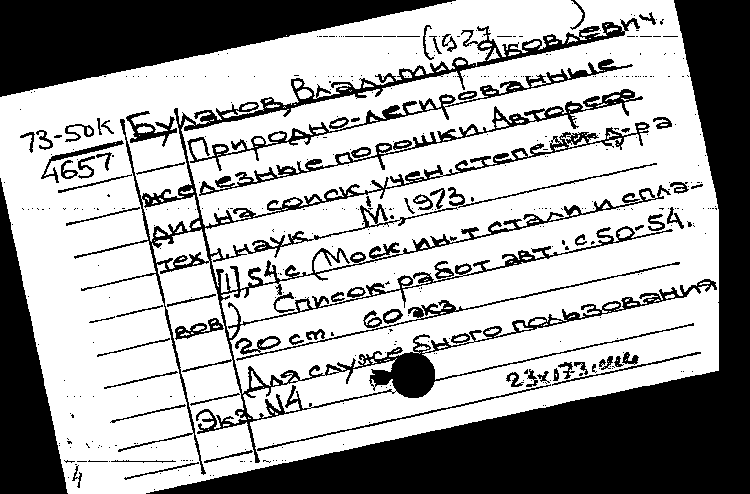 (1927 )
73-50К Буланов, Владимир Яковлевич.
4657 Природно-легированные
железные порошки. Автореф
дис. на соиск. учен. степени д-ра
техн. наук. М., 1973.
[1], 54 с. (Моск. ин-т стали и спла-
вов) Список работ авт.: с. 50-54.
20 см. 60 экз.
Для служебного пользования
Экз. N4.
4